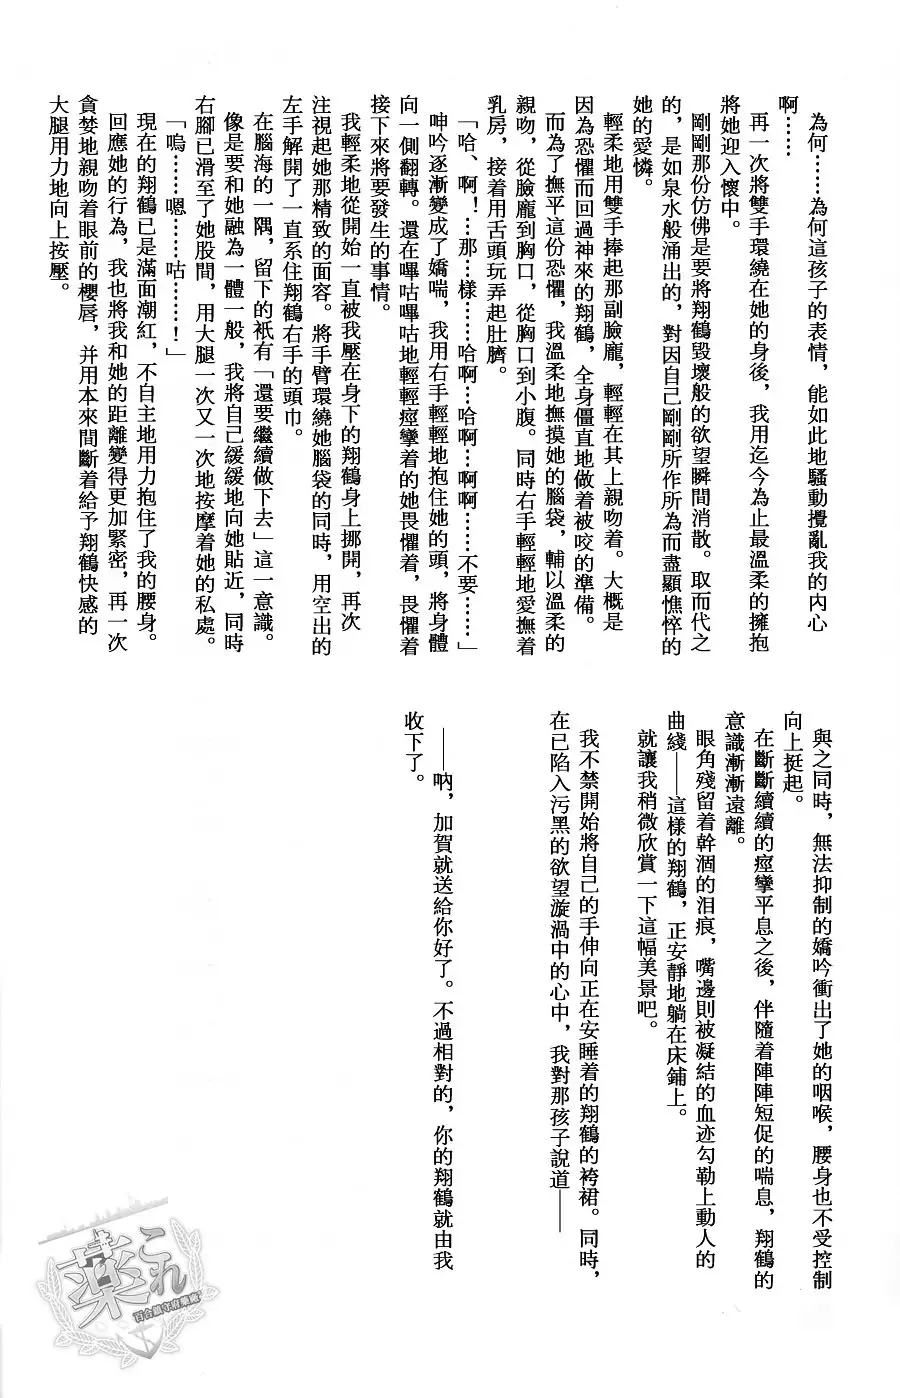 為何……為何這孩子的表情，能如此地騷動攪亂我的內心
啊……
再一次將雙手環繞在她的身後，我用迄今為止最溫柔的擁抱
將她迎入懷中。
剛剛那份仿佛是要將翔鶴毀壞般的欲望瞬間消散。取而代之
的，是如泉水般涌出的，對因自己剛剛所作所為而盡顯憔悴的
她的愛憐。
輕柔地用雙手捧起那副臉龐，輕輕在其上親吻着。大概是
因為恐懼而回過神來的翔鶴，全身僵直地做着被咬的準備。
而為了撫平這份恐懼，我溫柔地撫摸她的腦袋，輔以溫柔的
親吻，從臉龐到胸口，從胸口到小腹。同時右手輕輕地愛撫着
乳房，接着用舌頭玩弄起肚臍。
「哈、啊！…那…樣……哈啊…哈啊…啊啊……不要……」
呻吟逐漸變成了嬌喘，我用右手輕輕地抱住她的頭，將身體
向一側翻轉。還在嗶咕嗶咕地輕輕痙攣着的她畏懼着，畏懼着
接下來將要發生的事情。
我輕柔地從開始一直被我壓在身下的翔鶴身上挪開，再次
注視起她那精致的面容。將手臂環繞她腦袋的同時，用空出的
左手解開了一直系住翔鶴右手的頭巾。
在腦海的一隅，留下的衹有「還要繼續做下去」這一意識。
像是要和她融為一體一般，我將自己緩緩地向她貼近，同時
右腳已滑至了她股間，用大腿一次又一次地按摩着她的私處。
「嗚……嗯……咕……！」
現在的翔鶴已是滿面潮紅，不自主地用力抱住了我的腰身。
回應她的行為，我也將我和她的距離變得更加緊密，再一次
貪婪地親吻着眼前的櫻唇，并用本來間斷着給予翔鶴快感的
大腿用力地向上按壓。
與之同時，無法抑制的嬌吟衝出了她的咽喉，腰身也不受控制
向上挺起。
在斷斷續續的痙攣平息之後，伴隨着陣陣短促的喘息，翔鶴的
意識漸漸遠離。
眼角殘留着幹涸的泪痕，嘴邊則被凝結的血迹勾勒上動人的
曲綫——這樣的翔鶴，正安靜地躺在床鋪上。
就讓我稍微欣賞一下這幅美景吧。
我不禁開始將自己的手伸向正在安睡着的翔鶴的袴裙。同時，
在已陷入污黑的欲望漩渦中的心中，我對那孩子說道——
——吶，加賀就送給你好了。不過相對的，你的翔鶴就由我
收下了。
薬これ
百合鎮守府薬廠